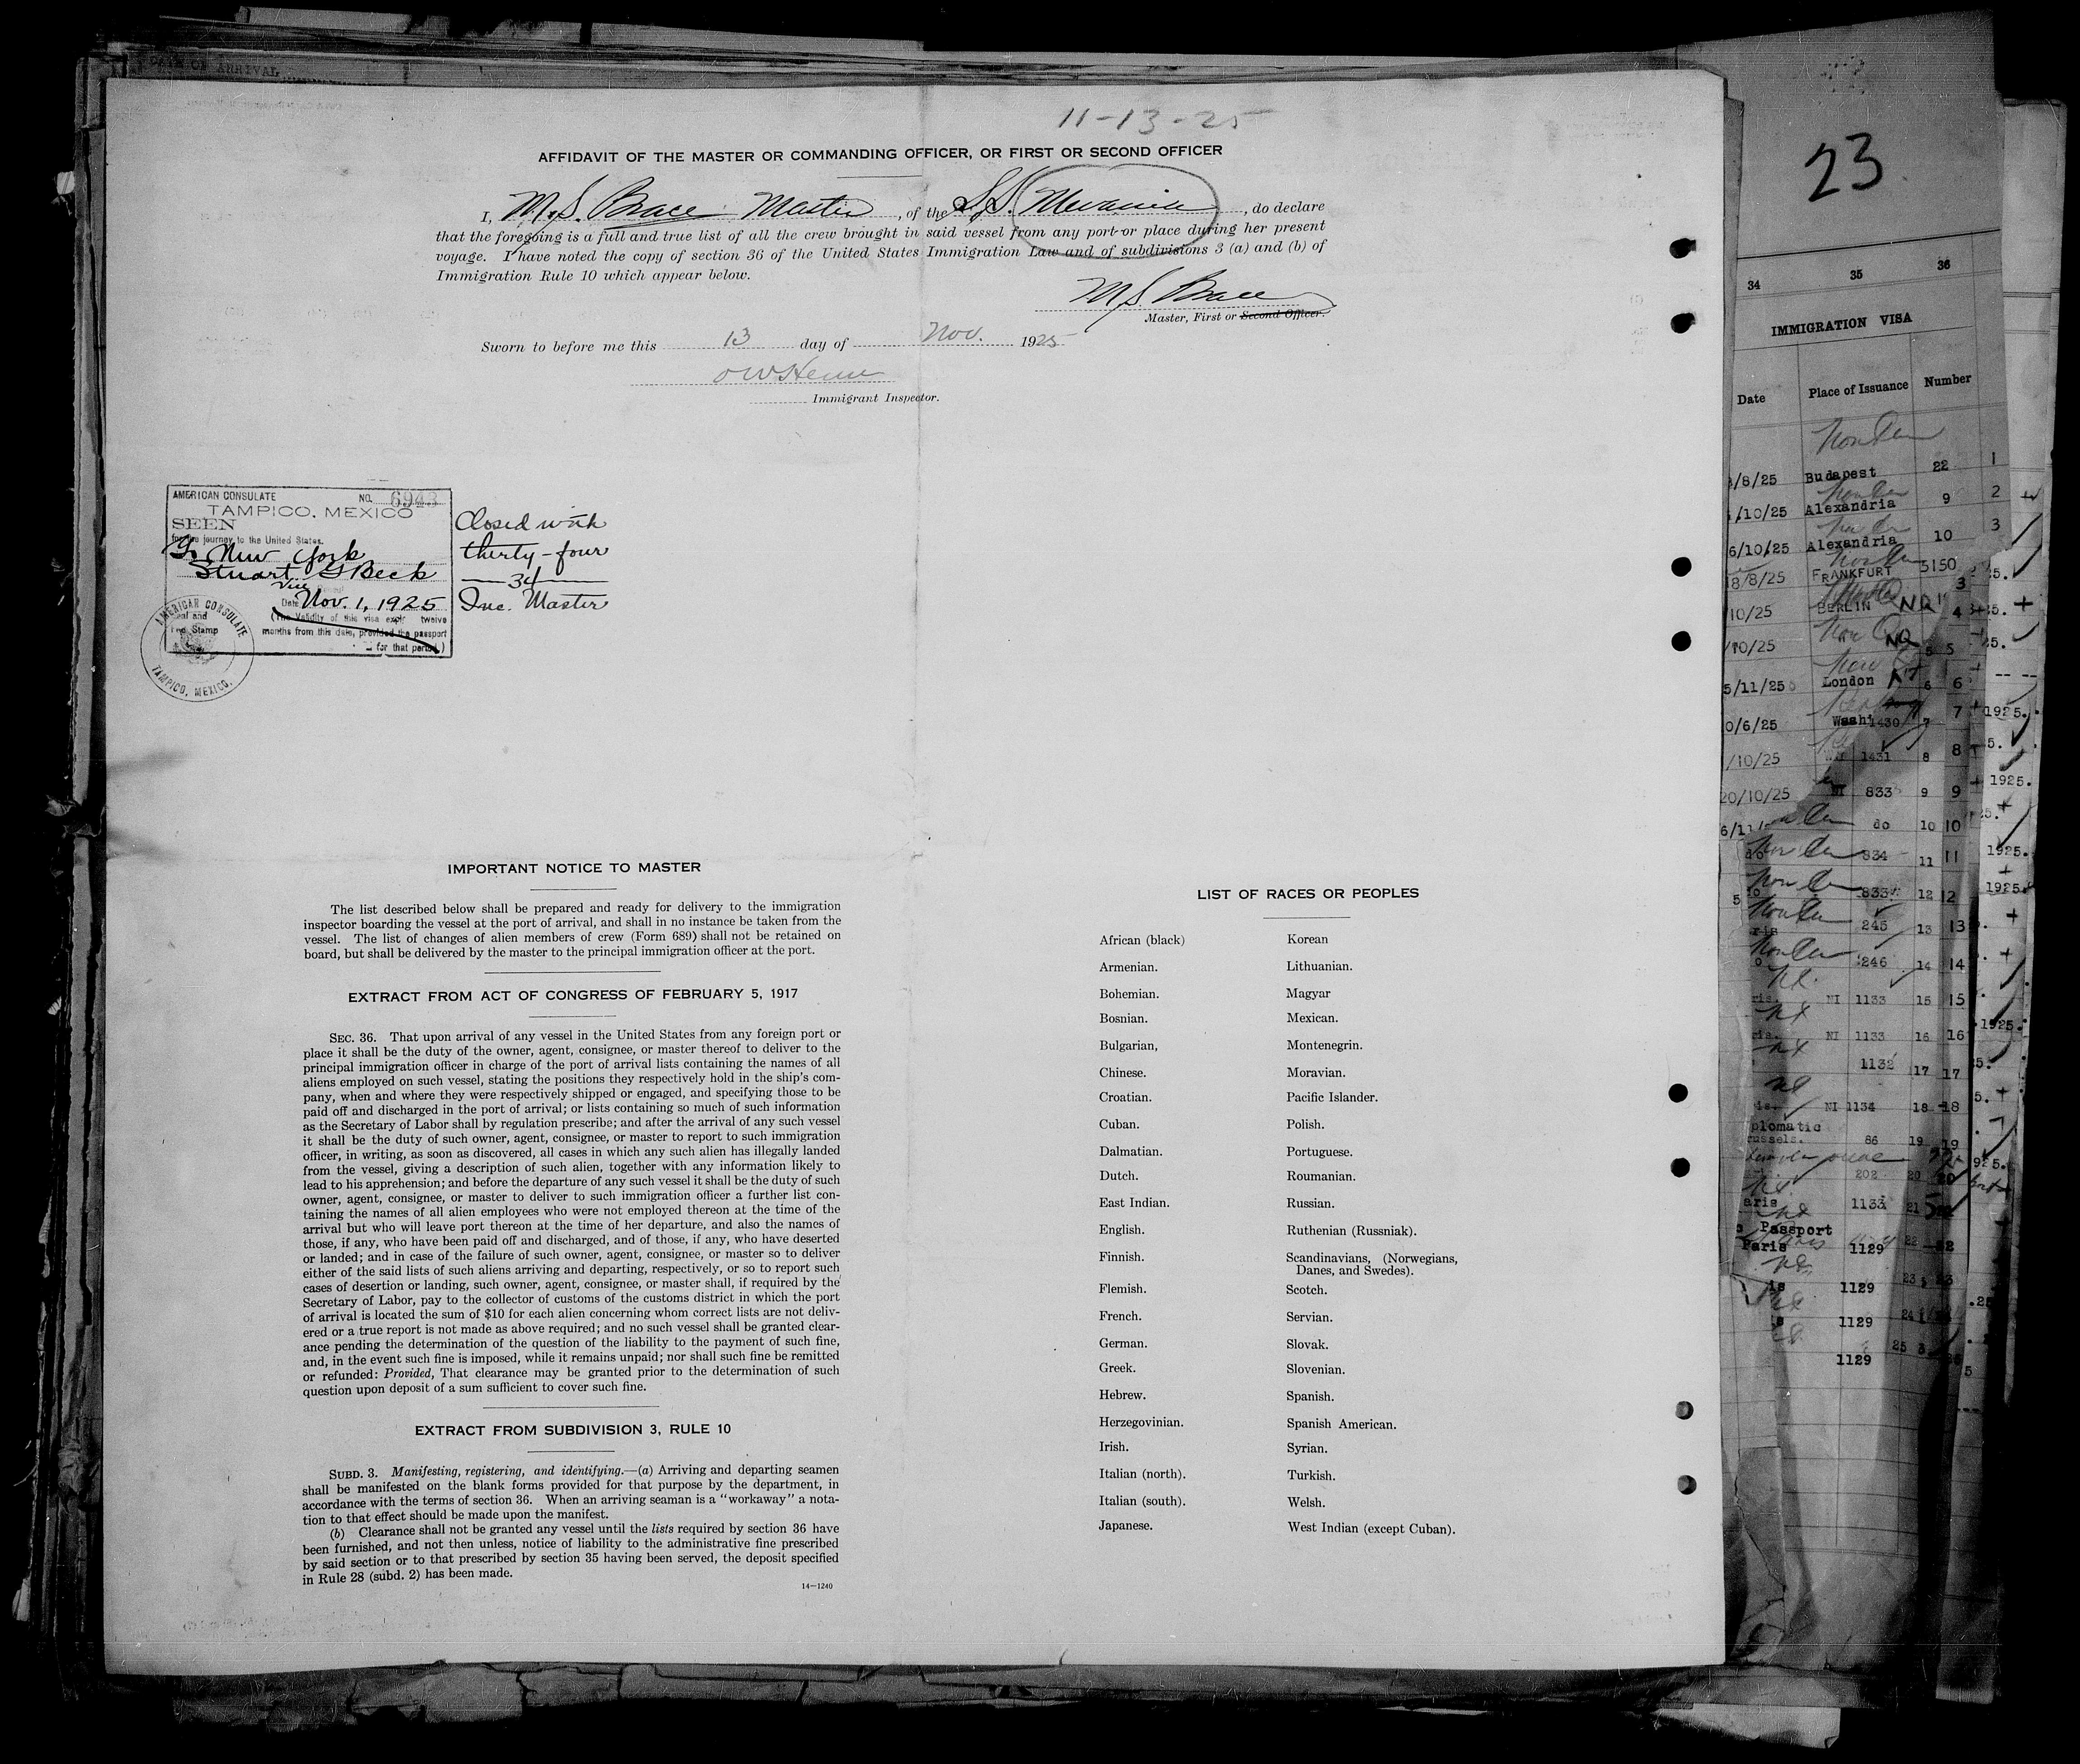 11-13-25
AFFIDAVIT OF THE MASTER OR COMMANDING OFFICER, OR FIRST OR SECOND OFFICER
I, M.S. Brace Master, of the S.S. Mevania, do declare
that the foregoing is a full and true list of all the crew brought in said vessel from any port or place during her present
voyage. I have noted the copy of section 36 of the United States Immigration Law and of subdivisions 3 (a) and (b) of
Immigration Rule 10 which appear below.
M S. Brace
Master, First or Second Officer.
Sworn to before me this 13 day of Nov. 1925
Immigrant Inspector.
AMERICAN CONSULATE NO. 6943
TAMPICO, MEXICO
SEEN
for the journey to the United States.
To New York
Stuart G Beck
Vice
Date Nov. 1, 1925
(The Validity of this visa twelve
months from this date, provided the passport
for that period.)
AMERICAN CONSULATE
Seal and
Stamp
TAMPICO, MEXICO.
Closed with
thirty-four
34
Inc. Master
IMPORTANT NOTICE TO MASTER
The list described below shall be prepared and ready for delivery to the immigration
inspector boarding the vessel at the port of arrival, and shall in no instance be taken from the
vessel. The list of changes of alien members of crew (Form 689) shall not be retained on
board, but shall be delivered by the master to the principal immigration officer at the port.
EXTRACT FROM ACT OF CONGRESS OF FEBRUARY 5, 1917
SEC. 36. That upon arrival of any vessel in the United States from any foreign port or
place it shall be the duty of the owner, agent, consignee, or master thereof to deliver to the
principal immigration officer in charge of the port of arrival lists containing the names of all
aliens employed on such vessel, stating the positions they respectively hold in the ship's com-
pany, when and where they were respectively shipped or engaged, and specifying those to be
paid off and discharged in the port of arrival; or lists containing so much of such information
as the Secretary of Labor shall by regulation prescribe; and after the arrival of any such vessel
it shall be the duty of such owner, agent, consignee, or master to report to such immigration
officer, in writing, as soon as discovered, all cases in which any such alien has illegally landed
from the vessel, giving a description of such alien, together with any information likely to
lead to his apprehension; and before the departure of any such vessel it shall be the duty of such
owner, agent, consignee, or master to deliver to such immigration officer a further list con-
taining the names of all alien employees who were not employed thereon at the time of the
arrival but who will leave port thereon at the time of her departure, and also the names of
those, if any, who have been paid off and discharged, and of those, if any, who have deserted
or landed; and in case of the failure of such owner, agent, consignee, or master so to deliver
either of the said lists of such aliens arriving and departing, respectively, or so to report such
cases of desertion or landing, such owner, agent, consignee, or master shall, if required by the
Secretary of Labor, pay to the collector of customs of the customs district in which the port
of arrival is located the sum of $10 for each alien concerning whom correct lists are not deliv-
ered or a true report is not made as above required; and no such vessel shall be granted clear-
ance pending the determination of the question of the liability to the payment of such fine,
and, in the event such fine is imposed, while it remains unpaid; nor shall such fine be remitted
or refunded: Provided, That clearance may be granted prior to the determination of such
question upon deposit of a sum sufficient to cover such fine.
EXTRACT FROM SUBDIVISION 3, RULE 10
SUBD. 3. Manifesting, registering, and identifying.—(a) Arriving and departing seamen
shall be manifested on the blank forms provided for that purpose by the department, in
accordance with the terms of section 36. When an arriving seaman is a "workaway" a nota-
tion to that effect should be made upon the manifest.
(b) Clearance shall not be granted any vessel until the lists required by section 36 have
been furnished, and not then unless, notice of liability to the administrative fine prescribed
by said section or to that prescribed by section 35 having been served, the deposit specified
in Rule 28 (subd. 2) has been made.
14—1240
LIST OF RACES OR PEOPLES
African (black) Korean
Armenian. Lithuanian.
Bohemian. Magyar
Bosnian. Mexican.
Bulgarian, Montenegrin.
Chinese. Moravian.
Croatian. Pacific Islander.
Cuban. Polish.
Dalmatian. Portuguese.
Dutch. Roumanian.
East Indian. Russian.
English. Ruthenian (Russniak).
Finnish. Scandinavians, (Norwegians,
Danes, and Swedes).
Flemish. Scotch.
French. Servian.
German. Slovak.
Greek. Slovenian.
Hebrew. Spanish.
Herzegovinian. Spanish American.
Irish. Syrian.
Italian (north). Turkish.
Italian (south). Welsh.
Japanese. West Indian (except Cuban).
23
34 35 36
IMMIGRATION VISA
Date Place of Issuance Number
/8/25 Budapest 22 1
/10/25 Alexandria 9 2
6/10/25 Alexandria 10 3
8/8/25 FRANKFURT 5150
/10/25 BERLIN NQ 4
/10/25 NQ 5 5
5/11/25 London 6 6
0/6/25 Wash 1430 7 7
/10/25 1431 8 8
20/10/25 NI 833 9 9
6/11/ do 10 10
834 11 11
833 12 12
245 13 13
246 14 14
ris. NI 1133 15 15
ris. NI 1133 16 16
1132 17 17
is. NI 1134 18 18
plomatic
russels. 86 19 19
202 20
aris 1133 21
Passport
Paris 1129 22
is 1129 23
1129 24
1129 25